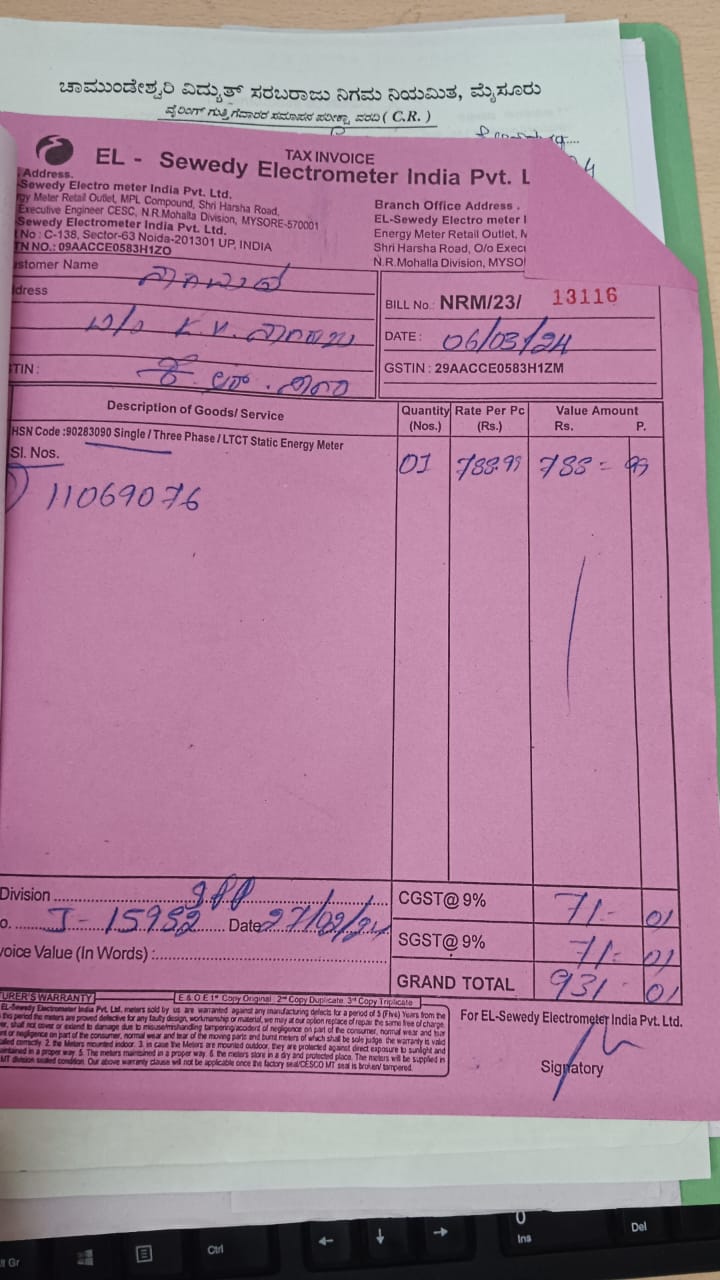 ಚಾಮುಂಡೇಶ್ವರಿ ವಿದ್ಯುತ್ ಸರಬರಾಜು ನಿಗಮ ನಿಯಮಿತ, ಮೈಸೂರು
ವೈರಿಂಗ್ ಗುತ್ತಿಗೆದಾರರ ಸಮಾಪನ ಪರೀಕ್ಷಾ ವರದಿ ( C.R. )
TAX INVOICE
EL - Sewedy Electrometer India Pvt. L
Address.
-Sewedy Electro meter India Pvt. Ltd.
rgy Meter Retail Outlet, MPL Compound, Shri Harsha Road,
Executive Engineer CESC, N.R.Mohalla Division, MYSORE-570001
Sewedy Electrometer India Pvt. Ltd.
No : C-138, Sector-63 Noida-201301 UP, INDIA
TN NO.: 09AACCE0583H1ZO
Branch Office Address .
EL-Sewedy Electro meter I
Energy Meter Retail Outlet, M
Shri Harsha Road, O/o Exec
N.R.Mohalla Division, MYSO
stomer Name
dress
K.V.
TIN :
BILL No.: NRM/23/ 13116
DATE : 06/03/24
GSTIN : 29AACCE0583H1ZM
Description of Goods/ Service Quantity (Nos.) Rate Per Pc (Rs.) Value Amount Rs. P.
HSN Code :90283090 Single / Three Phase / LTCT Static Energy Meter
Sl. Nos.
01 788.99 788 = 99
11069076
Division
o. J - 15952 Date 27/02/24
voice Value (In Words) :
CGST@ 9% 71 - 01
SGST@ 9% 71 - 01
GRAND TOTAL 931 - 01
TURER'S WARRANTY E & O E 1st Copy Original : 2nd Copy Duplicate 3rd Copy Triplicate
EL-Sewedy Electrometer India Pvt. Ltd. meters sold by us are warranted against any manufacturing defects for a period of 5 (Five) Years from the
this period the meters are proved defective for any faulty design, workmanship or material, we may at our option replace of repair the same free of charge.
For EL-Sewedy Electrometer India Pvt. Ltd.
Signatory
lt Gr
Ctrl
←
↓
→
0
Ins
Del